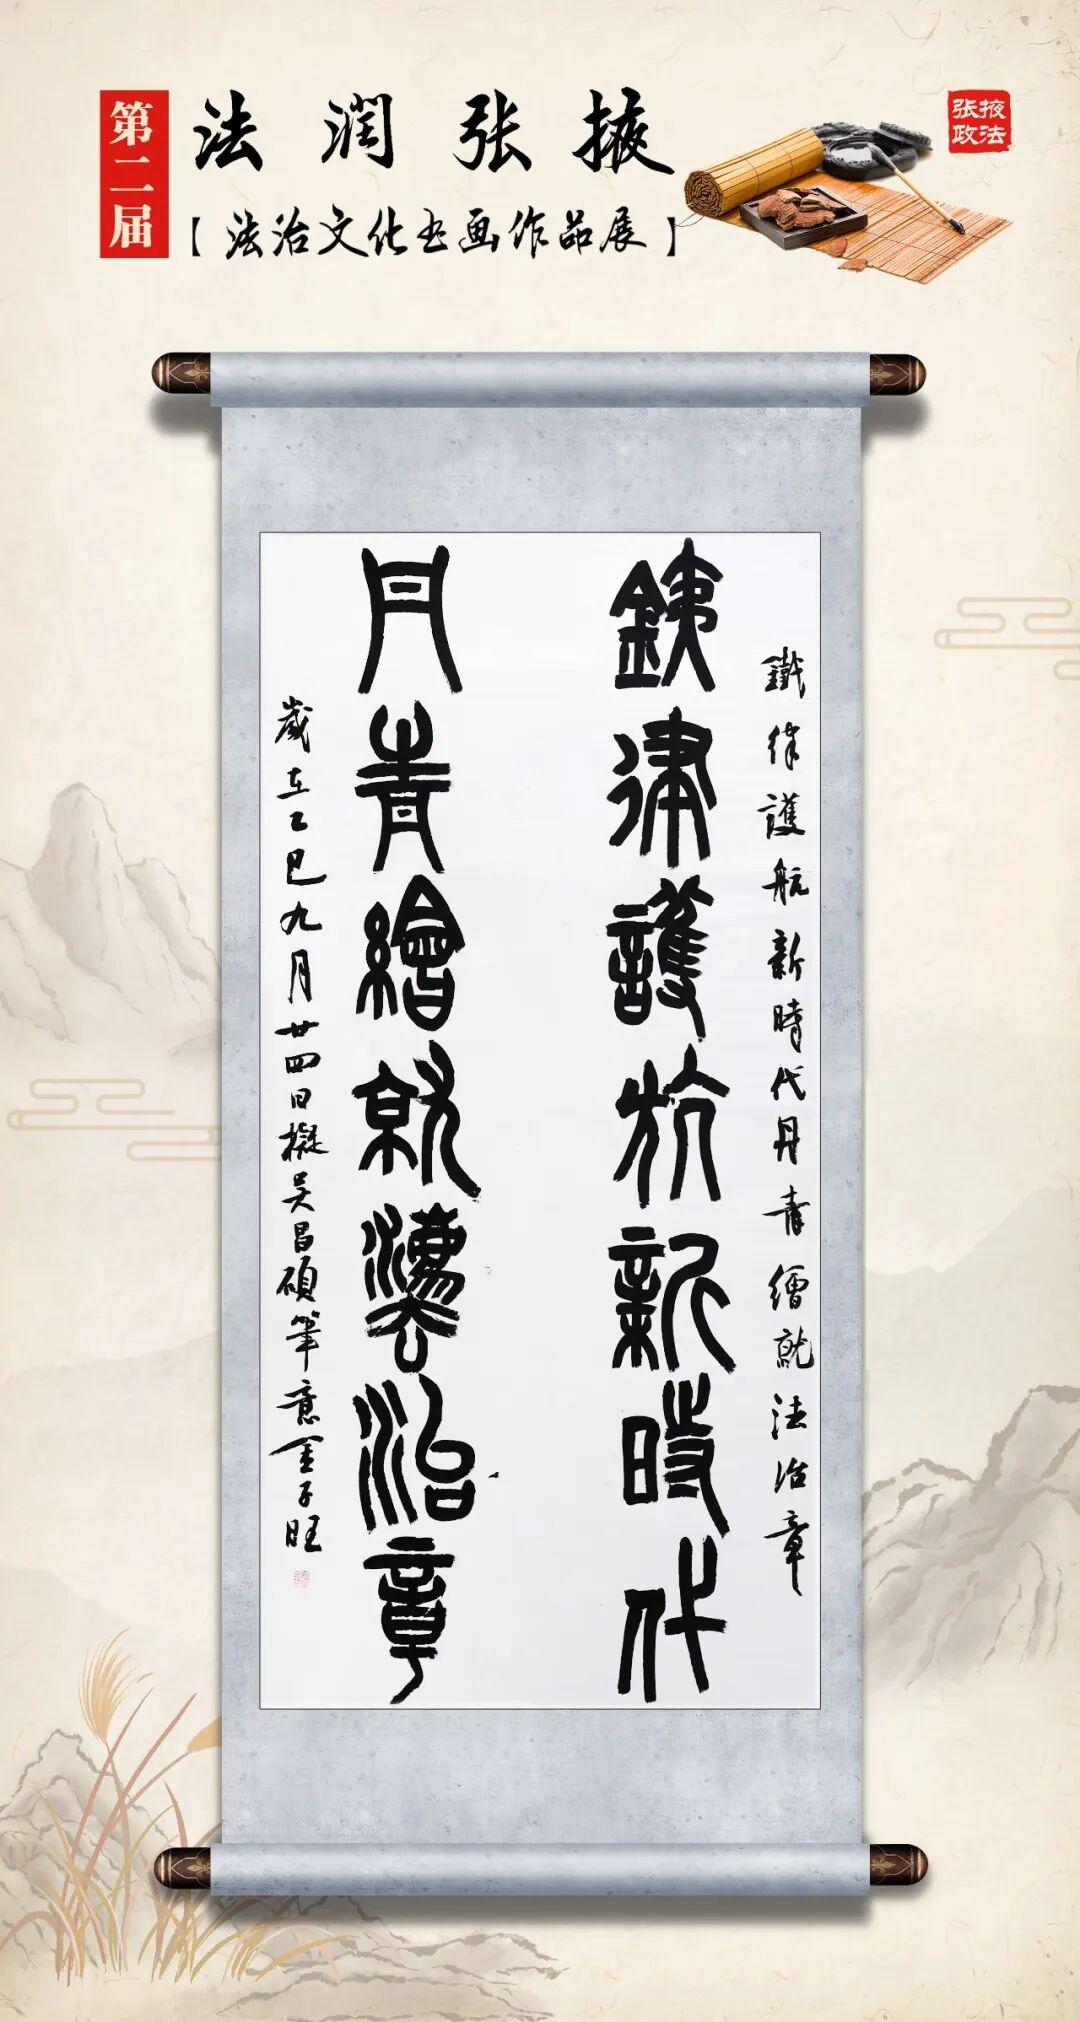 第二届
法润张掖
【法治文化书画作品展】
张掖
政法
鐵律護航新時代丹青繪就法治章
銕律護航新時代
丹青繪就灋治章
歲在乙巳九月廿四日擬吴昌碩筆意金子旺